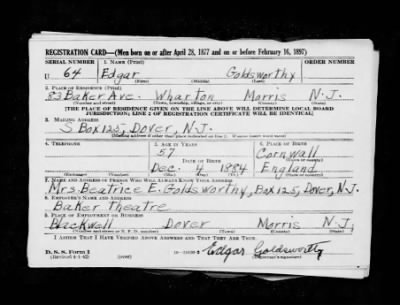 REGISTRATION CARD—(Men born on or after April 28, 1877 and on or before February 16, 1897)
SERIAL NUMBER 1. NAME (Print) ORDER NUMBER
U 64 Edgar Goldsworthy
(First) (Middle) (Last)
2. PLACE OF RESIDENCE (Print)
83 Baker Ave. Wharton Morris N.J.
(Number and street) (Town, township, village, or city) (County) (State)
[THE PLACE OF RESIDENCE GIVEN ON THE LINE ABOVE WILL DETERMINE LOCAL BOARD
JURISDICTION; LINE 2 OF REGISTRATION CERTIFICATE WILL BE IDENTICAL]
3. MAILING ADDRESS
Box 125, Dover, N.J.
4. TELEPHONE 5. AGE IN YEARS 6. PLACE OF BIRTH
57 Cornwall
DATE OF BIRTH
Dec. 4 1884 England
7. NAME AND ADDRESS OF PERSON WHO WILL ALWAYS KNOW YOUR ADDRESS
Mrs. Beatrice E. Goldsworthy, Box 125, Dover, N.J.
8. EMPLOYER'S NAME AND ADDRESS
Baker Theatre
9. PLACE OF EMPLOYMENT OR BUSINESS
Blackwell Dover Morris N.J.
I AFFIRM THAT I HAVE VERIFIED ABOVE ANSWERS AND THAT THEY ARE TRUE.
D. S. S. Form 1
Edgar Goldsworthy